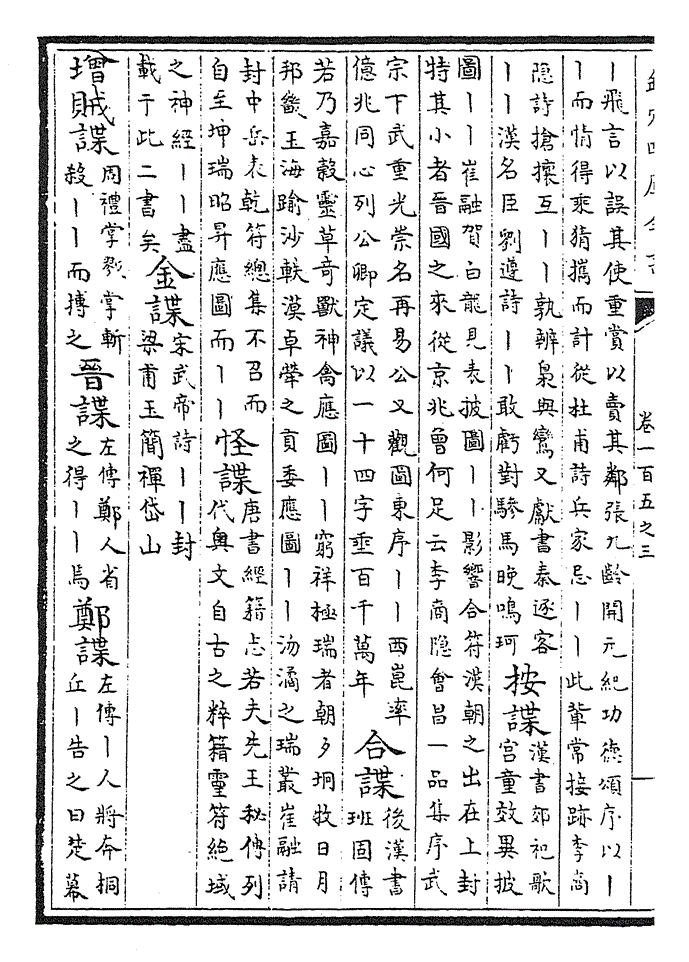 欽定四庫全書
卷一百五之三
丨飛言以誤其使重賞以賣其鄰張九齡開元紀功德頌序以丨
丨而情得乘猜攜而計從杜甫詩兵家忌丨丨此輩常接跡李商
隐詩搶攘互丨丨孰辨梟與鸞又獻書秦逐客
丨丨漢名臣劉遵詩丨丨敢虧對驂馬晚鳴珂
按諜
漢書郊祀歌
宮童效異披
圖丨丨崔融賀白龍見表披圖丨丨影響合符漢朝之出在上封
特其小者晉國之來從京兆曾何足云李商隐會昌一品集序武
宗下武重光崇名再易公又觀圖東序丨丨西崑率
億兆同心列公卿定議以一十四字垂百千萬年
合諜
後漢書
班固傳
若乃嘉穀靈草奇獸神禽應圖丨丨窮祥極瑞者朝夕坰牧日月
邦畿玉海踰沙軼漠卓犖之貢委應圖丨丨汾潏之瑞叢崔融請
封中岳表乾符總集不召而
自至坤瑞昭昇應圖而丨丨
怪諜
唐書經籍志若夫先王秘傳列
代奥文自古之粹籍靈符絶域
之神經丨丨盡
載于此二書矣
金諜
宋武帝詩丨丨封
梁甫玉簡禪岱山
增賊諜
周禮掌戮掌斬
殺丨丨而搏之
晉諜
左傳鄭人省
之得丨丨焉
鄭諜
左傳丨人將奔桐
丘丨告之曰楚幕